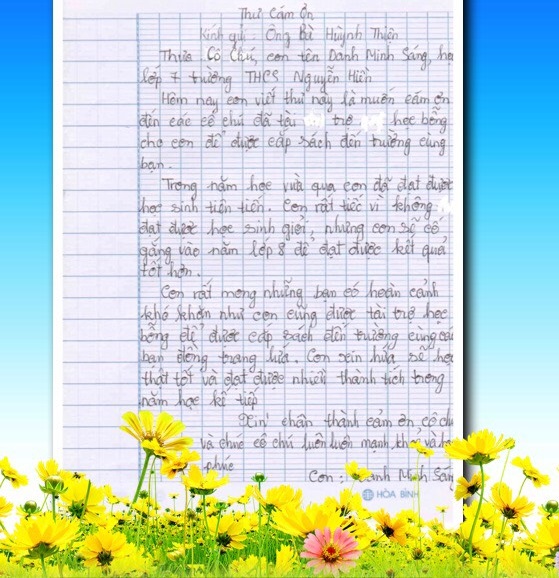 Thư Cám Ơn
Kính gửi : Ông Bà Huỳnh Thiện
Thưa Cô Chú, con tên Danh Minh Sáng, học
lớp 7 trường THCS Nguyễn Hiền
Hôm nay con viết thư này là muốn cám ơn
đến các cô chú đã tài trợ học bổng
cho con để được cắp sách đến trường cùng
bạn.
Trong năm học vừa qua con đã đạt được
học sinh tiên tiến. Con rất tiếc vì không
đạt được học sinh giỏi, nhưng con sẽ cố
gắng vào năm lớp 8 để đạt được kết quả
tốt hơn.
Con rất mong những bạn có hoàn cảnh
khó khăn như con cũng được tài trợ học
bổng để được cắp sách đến trường cùng các
bạn đồng trang lứa. Con xin hứa sẽ học
thật tốt và đạt được nhiều thành tích trong
năm học kế tiếp
Xin chân thành cảm ơn cô chú
và chúc cô chú luôn luôn mạnh khỏe và hạnh
phúc
Con : Danh Minh Sáng
HÒA BÌNH